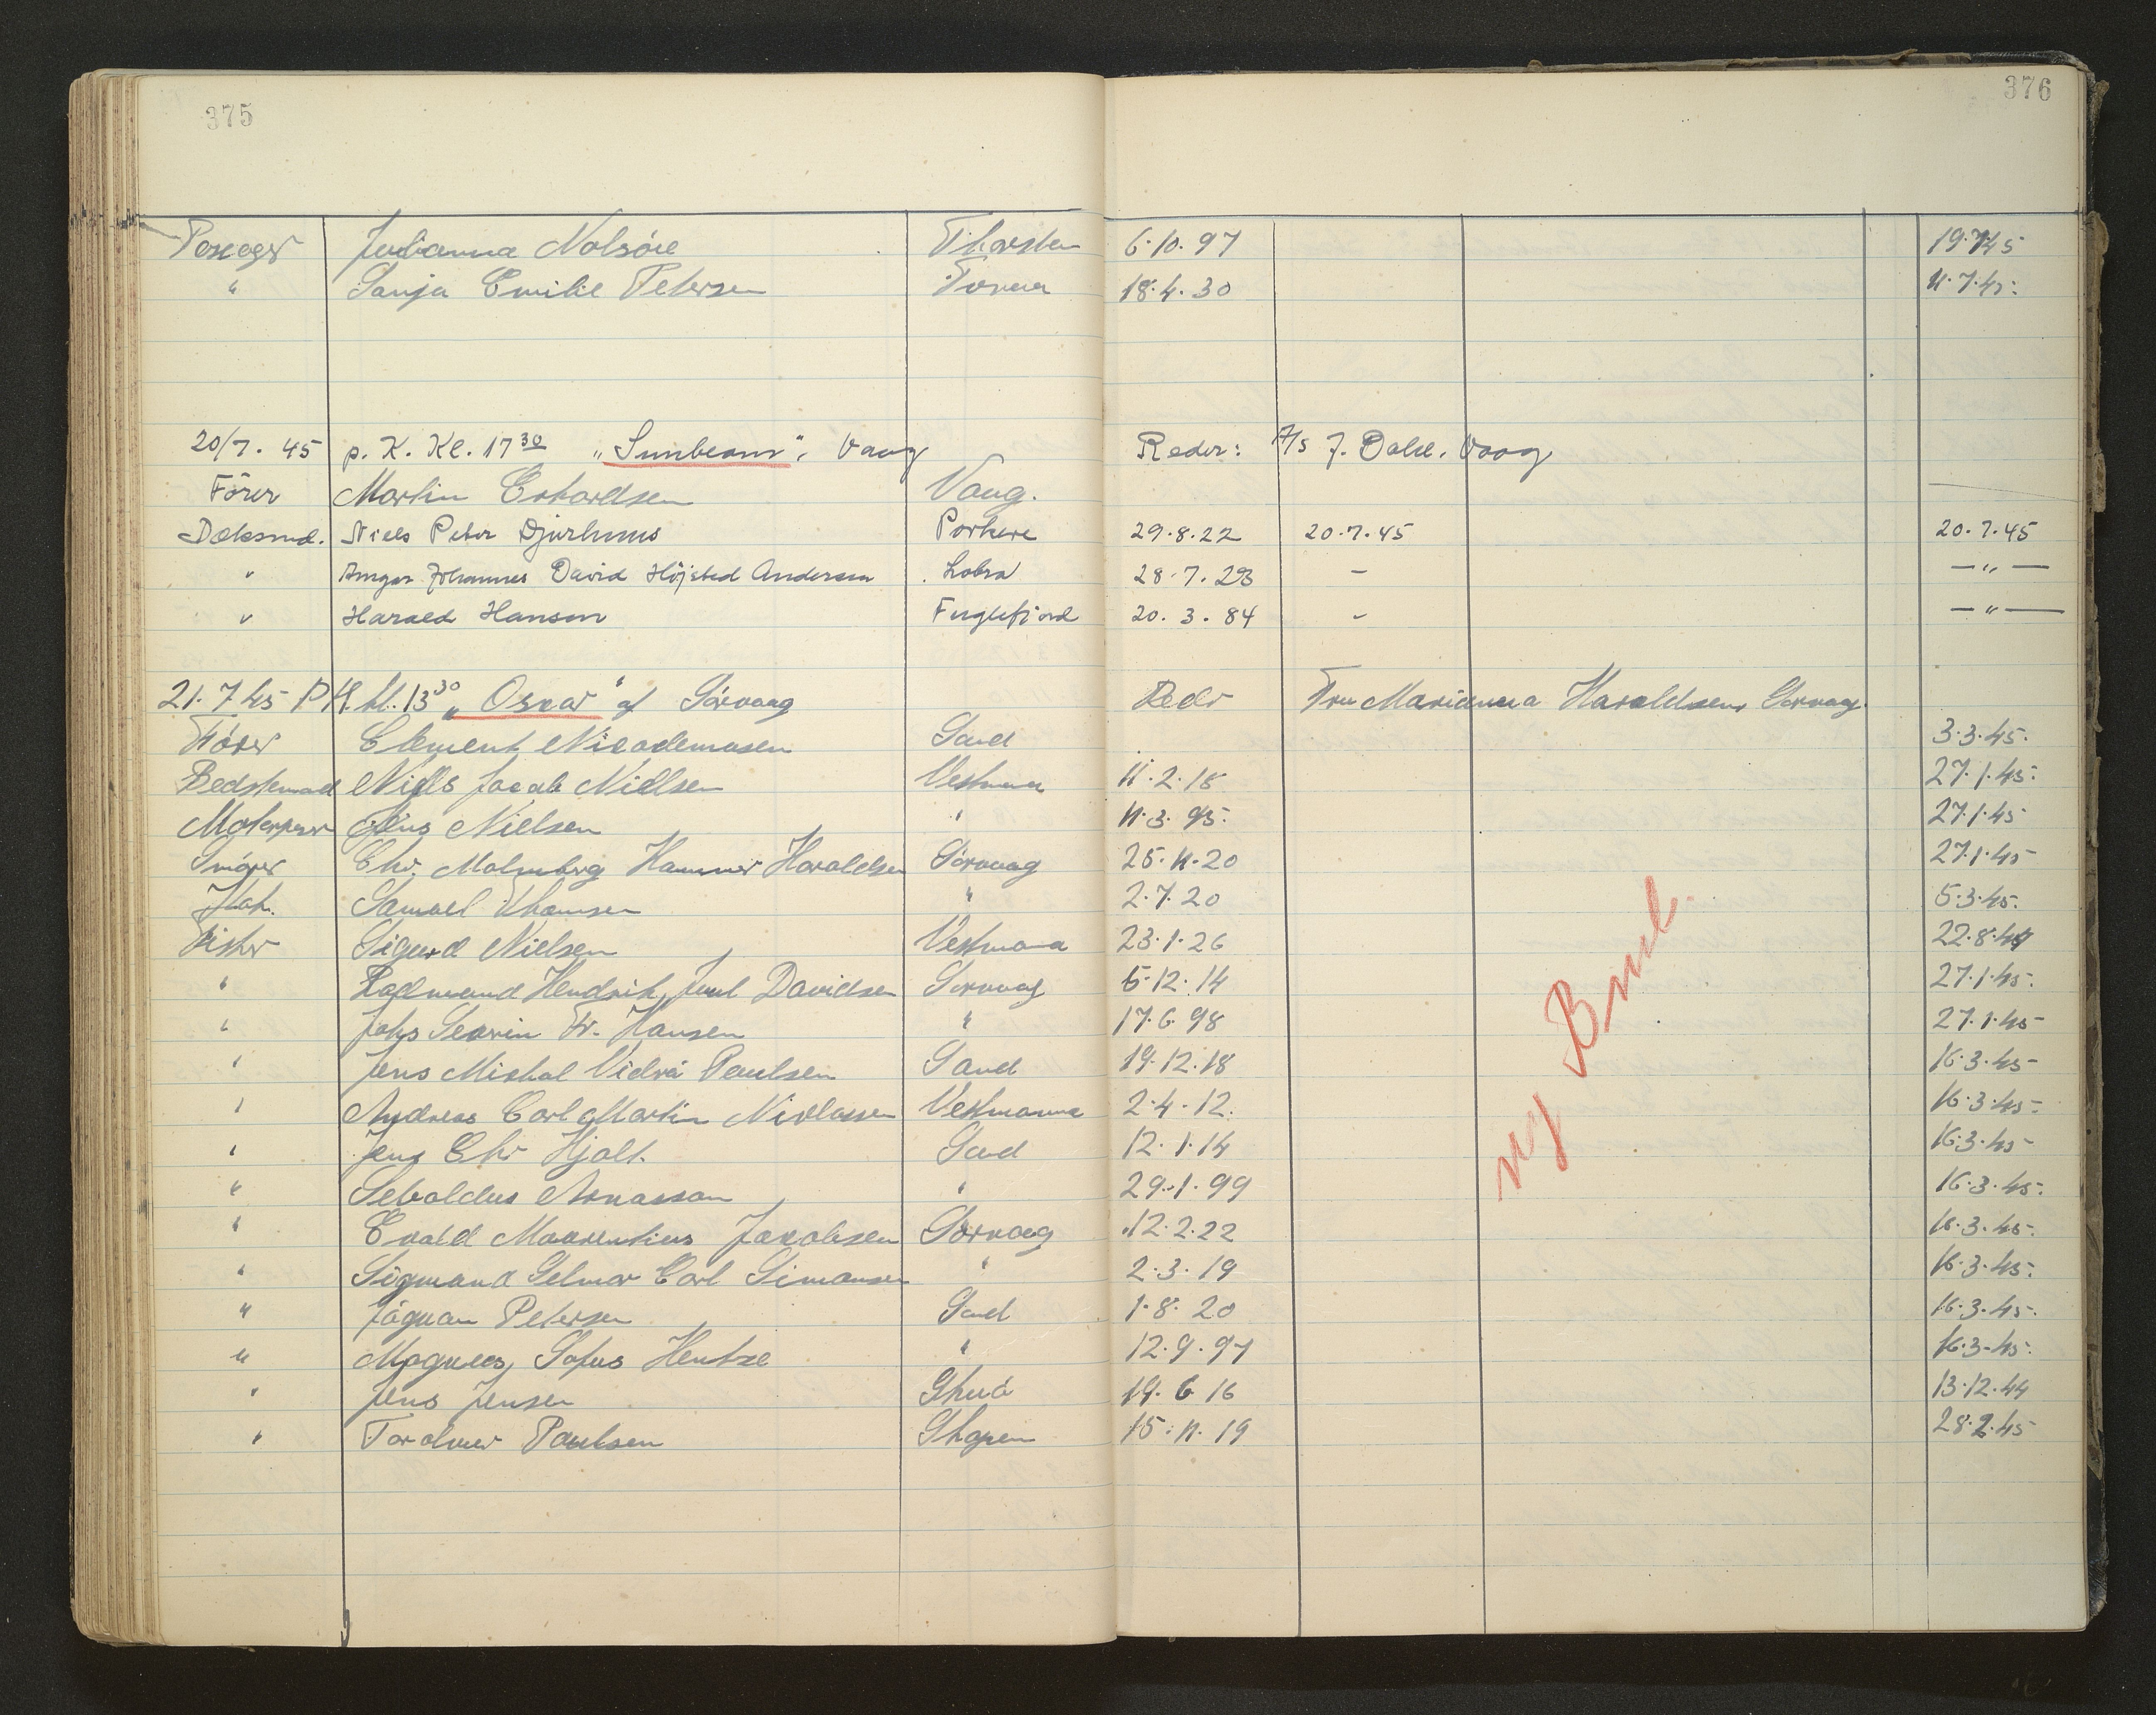 375
376
Julianna Nolsöe Thorshn 6.10.97 19.7.45
" Sanja Emilie Petersen 18.4.30 11.7.45.
20/7. 45 p. K. Kl. 17 30 "Sunbeam", Vaag Reder: A/s J. Dahl. Vaag
Förer Martin Vaag.
Dæksmd. Niels Peter Djurhuus Porkere 29.8.22 20.7.45 20.7.45
" Johannes David Höjsted Andersen Lobra 28.7.23 – —"—
" Harald Hansen Fuglefjord 20.3.84 – —"—
21.7.45 P.H. kl. 13 30 "Oscar" af Sörvaag Reder Fru Marianna Haraldsen, Sörvaag
Förer Clement Nicodemusen Sand 3.3.45.
Bedstemand Niels Jacob Nielsen Vestmana 11.2.18 27.1.45.
Jens Nielsen " 11.3.95. 27.1.45
Smörer Chr. Malmberg Hammer Haraldsen Sörvaag 25.11.20 27.1.45
Kok. Samuel Thomsen " 2.7.20 5.3.45.
Fisker Sigurd Nielsen Vestmana 23.1.26 22.8.44
" Hendrik Juul Davidsen Sörvaag 5.12.14 27.1.45.
" Johs Severin Fr. Hansen " 17.6.98 27.1.45
" Jens Michal Vidrá Poulsen Sand 19.12.18 16.3.45
" Andreas Carl Martin Niclassen Vestmanna 2.4.12. 16.3.45.
" Jens Chr Hjalt. Sand 12.1.14 16.3.45
" Seboldus Arnasson " 29.1.99 16.3.45.
" Evald Maurentius Jacobsen Sörvaag 12.2.22 16.3.45.
" Sigmund Selmar Carl Simonsen " 2.3.19 16.3.45.
" Jógvan Petersen Sand 1.8.20 16.3.45.
" Magnus Sofus Hentze " 12.9.97 16.3.45.
" Jens Jensen 19.6.16 13.12.44
" Torolver Poulsen 15.11.19 28.2.45
ny